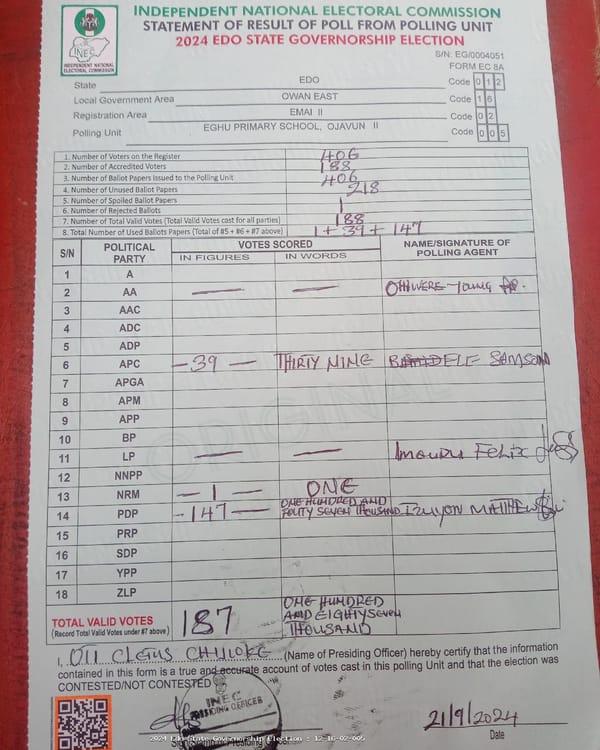 INDEPENDENT NATIONAL ELECTORAL COMMISSION
STATEMENT OF RESULT OF POLL FROM POLLING UNIT
2024 EDO STATE GOVERNORSHIP ELECTION
INEC
INDEPENDENT NATIONAL ELECTORAL COMMISSION
S/N: EG/0004051
FORM EC 8A
State EDO Code 0 1 2
Local Government Area OWAN EAST Code 1 6
Registration Area EMAI II Code 0 2
Polling Unit EGHU PRIMARY SCHOOL, OJAVUN II Code 0 0 5
1. Number of Voters on the Register 406
2. Number of Accredited Voters 188
3. Number of Ballot Papers Issued to the Polling Unit 406
4. Number of Unused Ballot Papers 218
5. Number of Spoiled Ballot Papers
6. Number of Rejected Ballots 1
7. Number of Total Valid Votes (Total Valid Votes cast for all parties) 188
8. Total Number of Used Ballots Papers (Total of #5 + #6 + #7 above) 1 + 39 + 147
S/N POLITICAL PARTY VOTES SCORED NAME/SIGNATURE OF POLLING AGENT
IN FIGURES IN WORDS
1 A
2 AA — — OHIWERE YOUNG
3 AAC
4 ADC
5 ADP
6 APC -39- THIRTY NINE BAMIDELE SAMSON
7 APGA
8 APM
9 APP
10 BP
11 LP — — FELIX
12 NNPP
13 NRM -1- ONE
14 PDP -147- ONE HUNDRED AND FOUTY SEVEN THOUSAND MATTHEW
15 PRP
16 SDP
17 YPP
18 ZLP
ORIGINAL
TOTAL VALID VOTES 187 ONE HUNDRED AND EIGHTY SEVEN THOUSAND
(Record Total Valid Votes under #7 above)
I, (Name of Presiding Officer) hereby certify that the information
contained in this form is a true and accurate account of votes cast in this polling Unit and that the election was
CONTESTED/NOT CONTESTED
INEC
PRESIDING OFFICER
21/9/2024
Date
2024 Edo State Governorship Election : 12-16-02-005